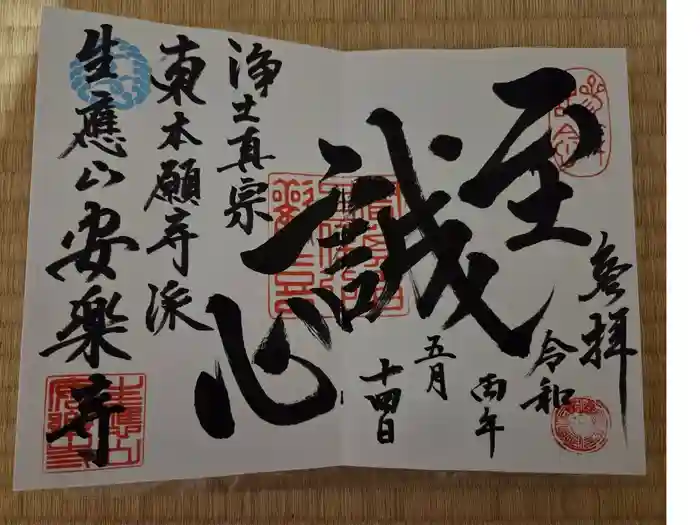 參拝
令和
丙午
五月
十四日
至誠心
浄土真宗
東本願寺派
生應山安楽寺